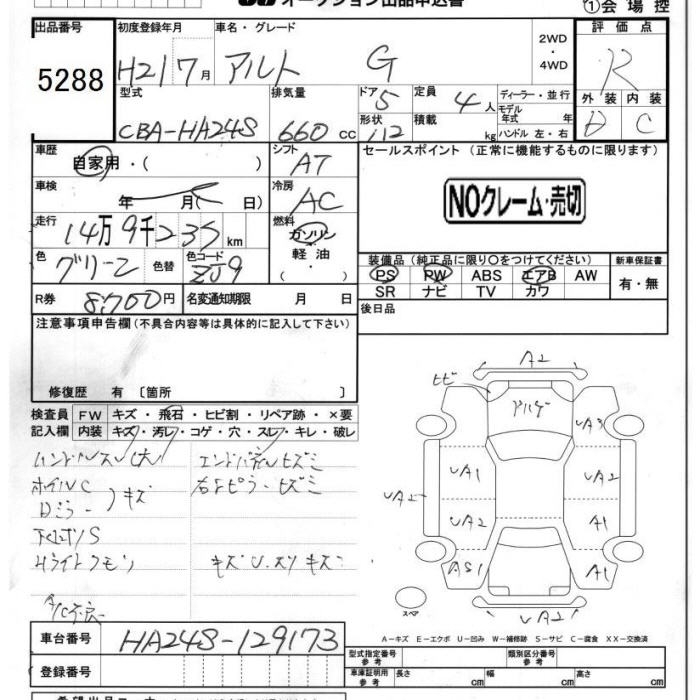 オークション出品申込書
①会場控
出品番号 5288
初度登録年月 H21 7月
車名・グレード アルト G
2WD
・
4WD
評価点 R
外装 内装
D C
型式 CBA-HA24S
排気量 660 cc
ドア 5
形状
定員 4人
積載 kg
ディーラー・並行
モデル年式 年
ハンドル 左・右
車歴 自家用・( )
シフト AT
セールスポイント (正常に機能するものに限ります)
NOクレーム・売切
車検 年 月( 日)
冷房 AC
走行 14万9千235km
燃料 ガソリン・軽油・
色 グリーン 色替
色コード ZJ9
装備品(純正品に限り○をつけてください)
新車保証書
PS PW ABS エアB AW
SR ナビ TV カワ
有・無
R券 8,700円
名変通知期限 月 日
後日品
注意事項申告欄(不具合内容等は具体的に記入して下さい)
修復歴 有 〔箇所 〕
検査員記入欄
FW キズ・飛石・ヒビ割・リペア跡・×要
内装 キズ・汚レ・コゲ・穴・スレ・キレ・破レ
ハンドルスレ大
ホイルC
Dミラー)キズ
右Dピラーヒズミ
Hライトクモリ
A/C不良
A2
ヒビ
UA3
UA1
UA2
UA2
UA2
A1
AS1
A1
UA2
スペア
A-キズ E-エクボ U-凹み W-補修跡 S-サビ C-腐食 XX-交換済
車台番号 HA24S-129173
登録番号
型式指定番号 参考
類別区分番号 参考
車庫証明用 参考
長さ cm 幅 cm 高さ cm